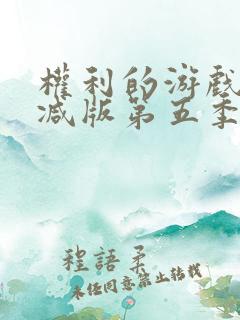 權利的游戲
減版第五季
程語柔
未经同意禁止转载